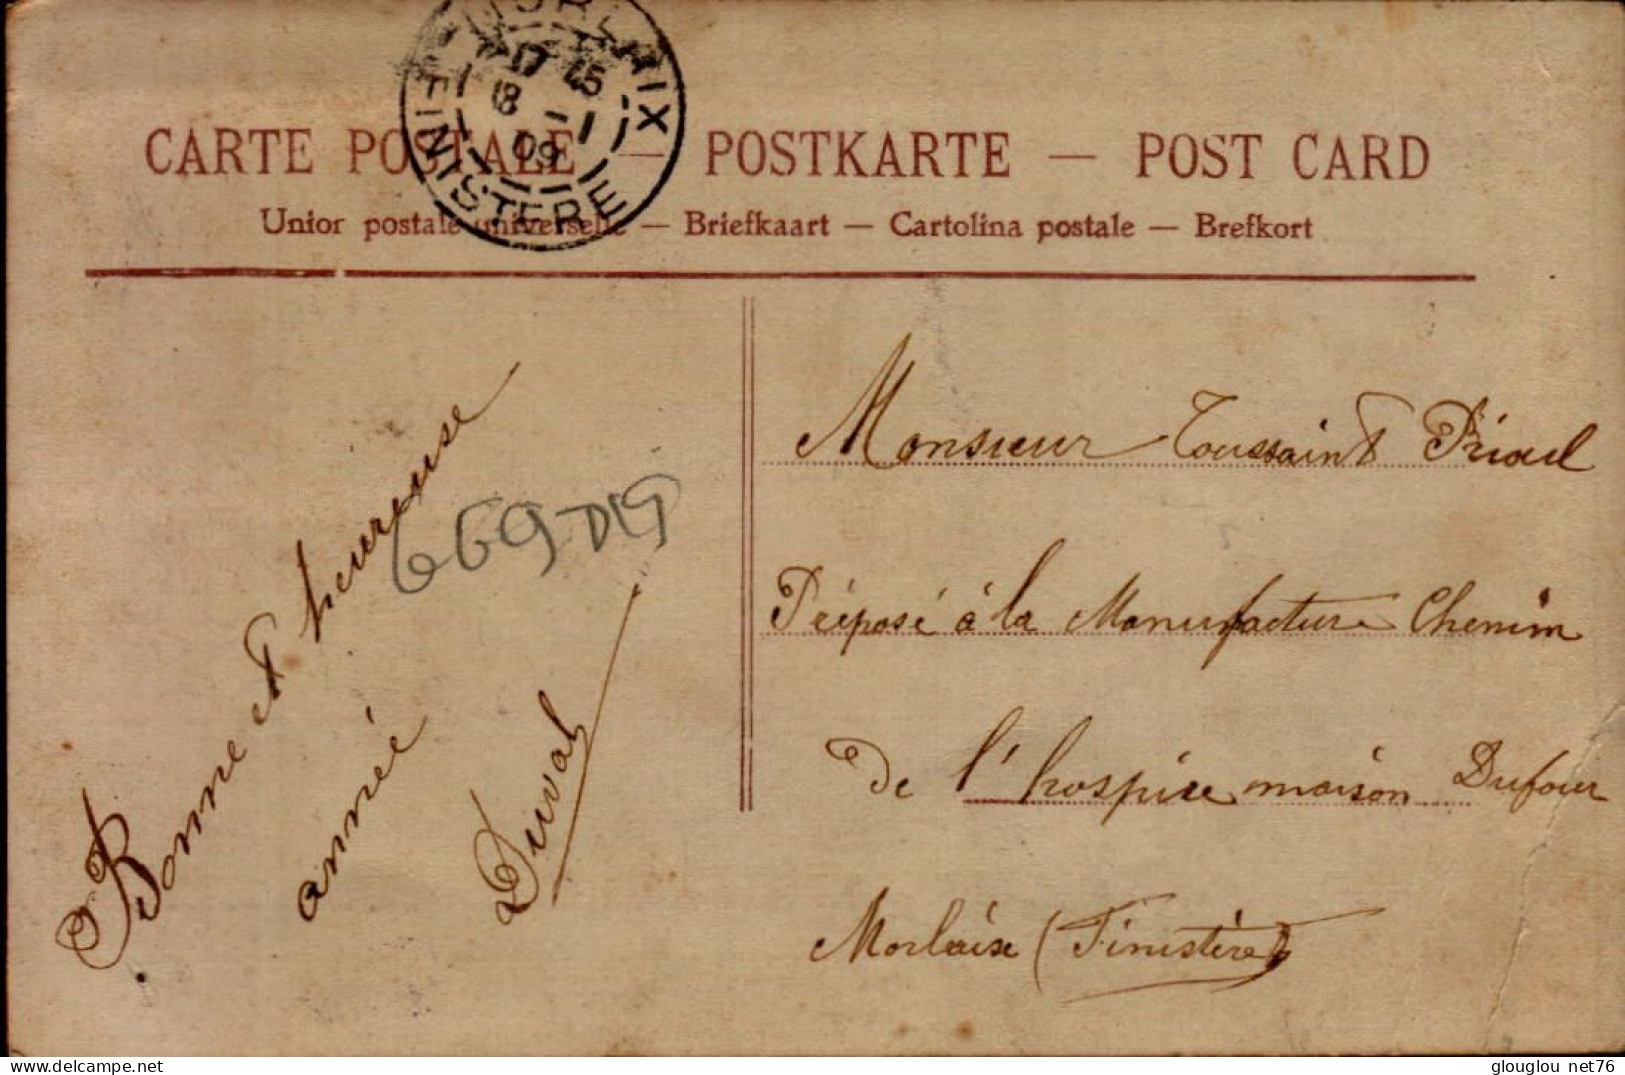 MORLAIX
17 15
8 -1
09
FINISTERE
CARTE POSTALE — POSTKARTE — POST CARD
Union postale universelle — Briefkaart — Cartolina postale — Brefkort
Bonne et heureuse
année
Duval
669 D19
Monsieur Toussaint Prioul
Préposé à la Manufacture Chemin
de l'hospice maison Dufour
Morlaise (Finistère)
glouglou_net76